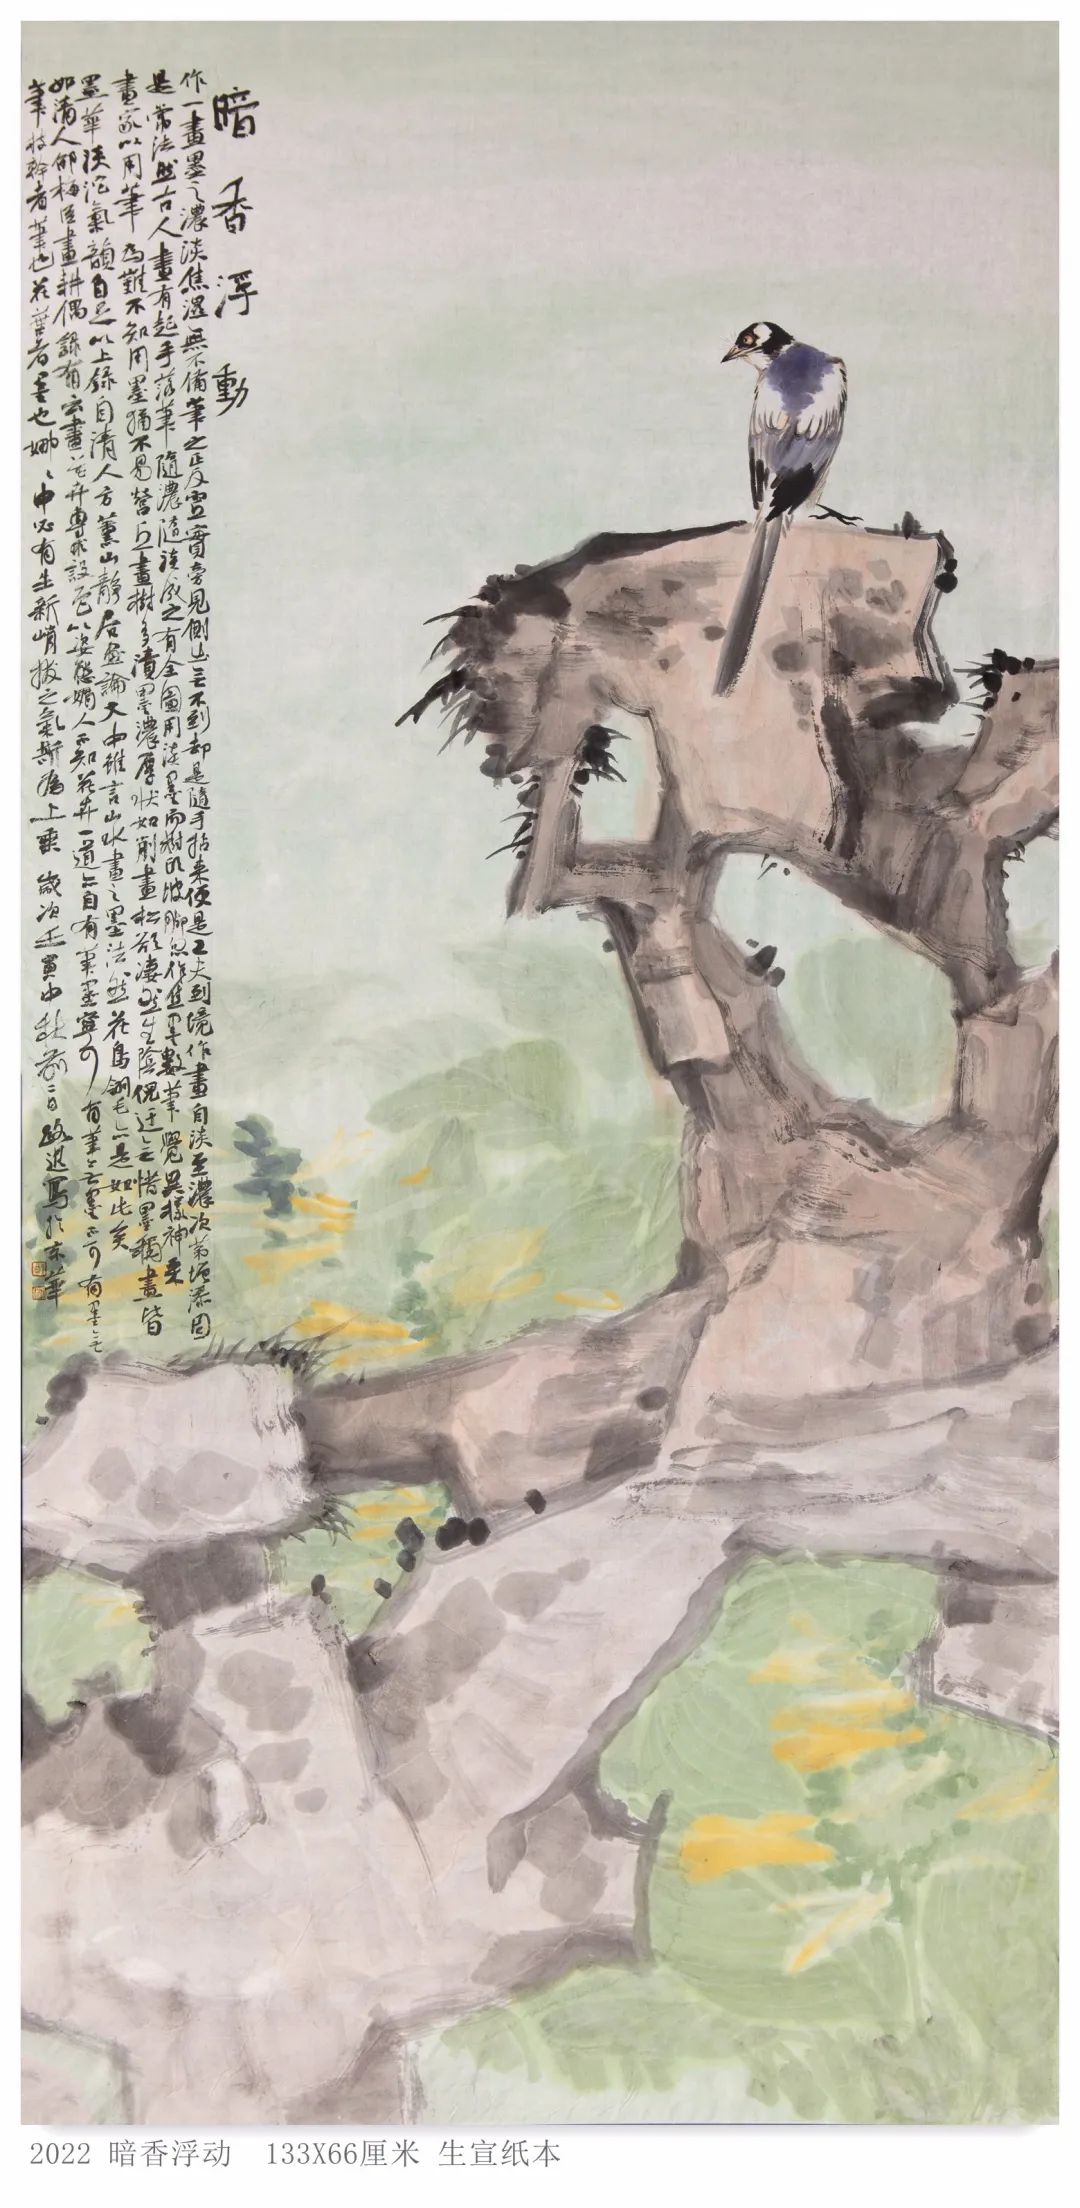 暗香浮動
作一畫墨之濃淡焦濕無不備筆之正反虛實旁見側出無不到却是隨手拈來便是工夫到境作畫自淡至濃次第增添固
是常法然古人畫有起手落筆隨濃隨淡成之有全圖用淡墨而樹頭坡腳忽作焦墨數筆覺異樣神采
畫家以用筆為難不知用墨猶不易營丘畫樹多漬墨濃厚狀如削畫松欲凄然生陰倪迂無惜墨稱畫皆
墨華淡沱氣韻自足以上錄自清人方薰山靜居畫論文中雖言山水畫之墨法然花鳥翎毛亦是如此矣
如清人邵梅臣畫耕偶錄有云畫花卉專求設色以姿態媚人不知花卉一道亦自有筆墨寧可有筆無墨不可有墨無
筆枝幹者筆也花葉者墨也娜娜中必有生新峭拔之氣斯為上乘 歲次壬寅中秋前二日 寫於京華
2022 暗香浮动 133X66厘米 生宣纸本